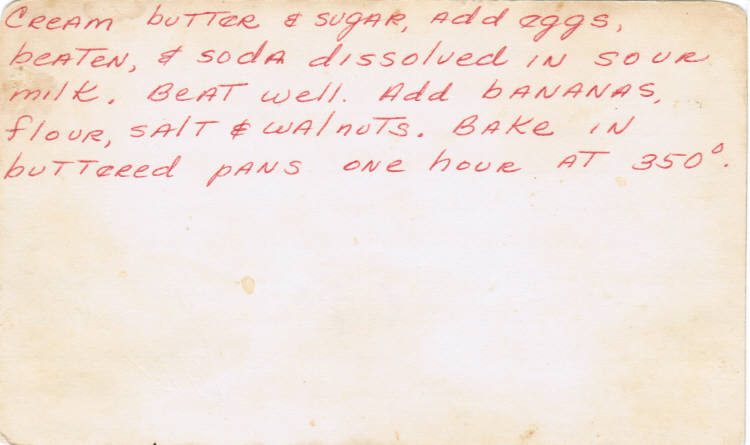 Cream butter & sugar, Add eggs,
beaten, & soda dissolved in sour
milk. Beat well. Add bananas,
flour, salt & walnuts. Bake in
buttered pans one hour at 350°.